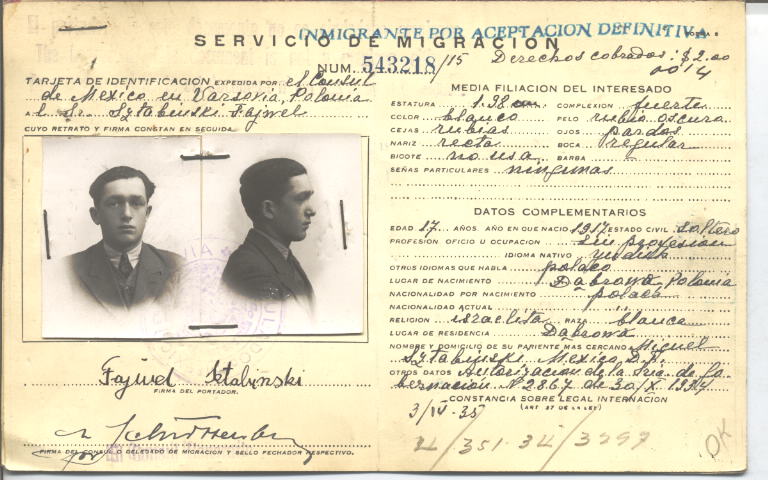 INMIGRANTE POR ACEPTACION DEFINITIVA
SERVICIO DE MIGRACION
NUM. 543218/15
Derechos cobrados: $2.00
0014
TARJETA DE IDENTIFICACION EXPEDIDA POR el Consul
de Mexico en Varsovia, Polonia
A L Sr. Sztabinski Fajwel
CUYO RETRATO Y FIRMA CONSTAN EN SEGUIDA.
Fajwel Sztabinski
FIRMA DEL PORTADOR.
FIRMA DEL CONSUL O DELEGADO DE MIGRACION Y SELLO FECHADOR RESPECTIVO.
MEDIA FILIACION DEL INTERESADO
ESTATURA 1.98 cm. COMPLEXION fuerte
COLOR blanco PELO rubio oscuro
CEJAS rubias OJOS pardos
NARIZ recta BOCA regular
BIGOTE no usa BARBA
SEÑAS PARTICULARES ningunas
DATOS COMPLEMENTARIOS
EDAD 17 AÑOS. AÑO EN QUE NACIO 1917 ESTADO CIVIL soltero
PROFESION OFICIO U OCUPACION sin profesion
IDIOMA NATIVO yidish
OTROS IDIOMAS QUE HABLA polaco
LUGAR DE NACIMIENTO Dąbrowa, Polonia
NACIONALIDAD POR NACIMIENTO polaca
NACIONALIDAD ACTUAL
RELIGION israelita RAZA blanca
LUGAR DE RESIDENCIA Dąbrowa
NOMBRE Y DOMICILIO DE SU PARIENTE MAS CERCANO Miguel
Sztabinski Mexico, D.F.
OTROS DATOS Autorizacion de la Sria. de Go-
bernacion N 2867 de 30/X 1934
CONSTANCIA SOBRE LEGAL INTERNACION
(ART 37 DE LA LEY)
3/IV-35
4/351.34/3297
OK